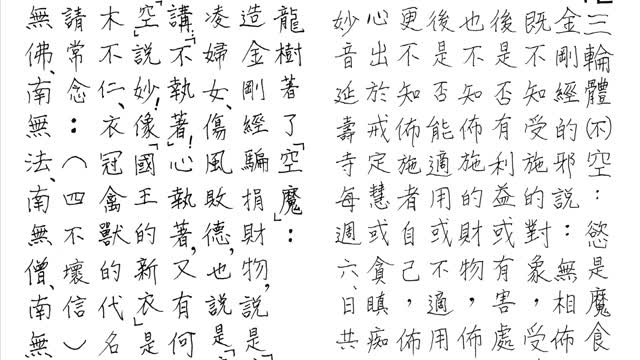 三輪體(不)空：慾是魔食
金剛經的邪說：無相佈
既不知受施的對象，受
後是否有利益或有害，處
也不知佈施的財物，佈
後是否能適用或不適用
更不知佈施者自己，佈
心出於戒定慧或貪瞋痴
妙音延壽寺每週六、日共
龍樹著了「空魔」：
造金剛經騙捐財物,說是
凌婦女、傷風敗德,也說是「
講「不執著」!心執著,又有何
空」說妙!像「國王的新衣」是
木不仁、衣冠禽獸的代名
請常念：（四不壞信）
無佛、南無法、南無僧、南無